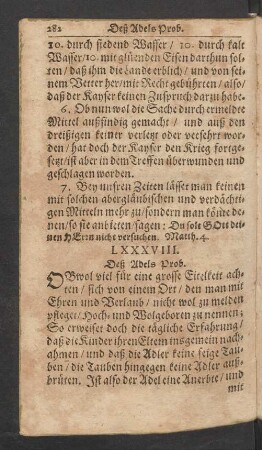 282 Deß Adels Prob.
10. durch siedend Wasser / 10. durch kalt
Wasser / 10. mit glüenden Eisen darthun sol-
ten / daß ihm die Lande erblich / und von sei-
nem Vetter her / mit Recht gebührten / also /
daß der Kayser keinen Zuspruch darzu habe.
6. Ob nun wol die Sache durch ermeldte
Mittel außfündig gemacht / und auß den
dreißigen keiner verletz oder versehrt wor-
den / hat doch der Kayser den Krieg fortge-
setzt / ist aber in dem Treffen überwunden und
geschlagen worden.
7. Bey unsren Zeiten lässet man keinen
mit solchen abergläubischen und verdächti-
gen Mitteln mehr zu / sondern man könte de-
nen / so sie anbieten / sagen: Du solt GOtt dei-
nen HErrn nicht versuchen. Matth. 4.
LXXXVIII.
Deß Adels Prob.
OBwol viel für eine grosse Eitelkeit ach-
ten / sich von einem Ort / den man mit
Ehren und Verlaub / nicht wol zu melden
pfleget / Hoch- und Wolgeboren zu nennen;
So erweiset doch die tägliche Erfahrung /
daß die Kinder ihren Eltern insgemein nach-
ahmen / und daß die Adler keine feige Tau-
ben / die Tauben hingegen keine Adler auß-
brüten. Ist also der Adel eine Anerbte / und
mit